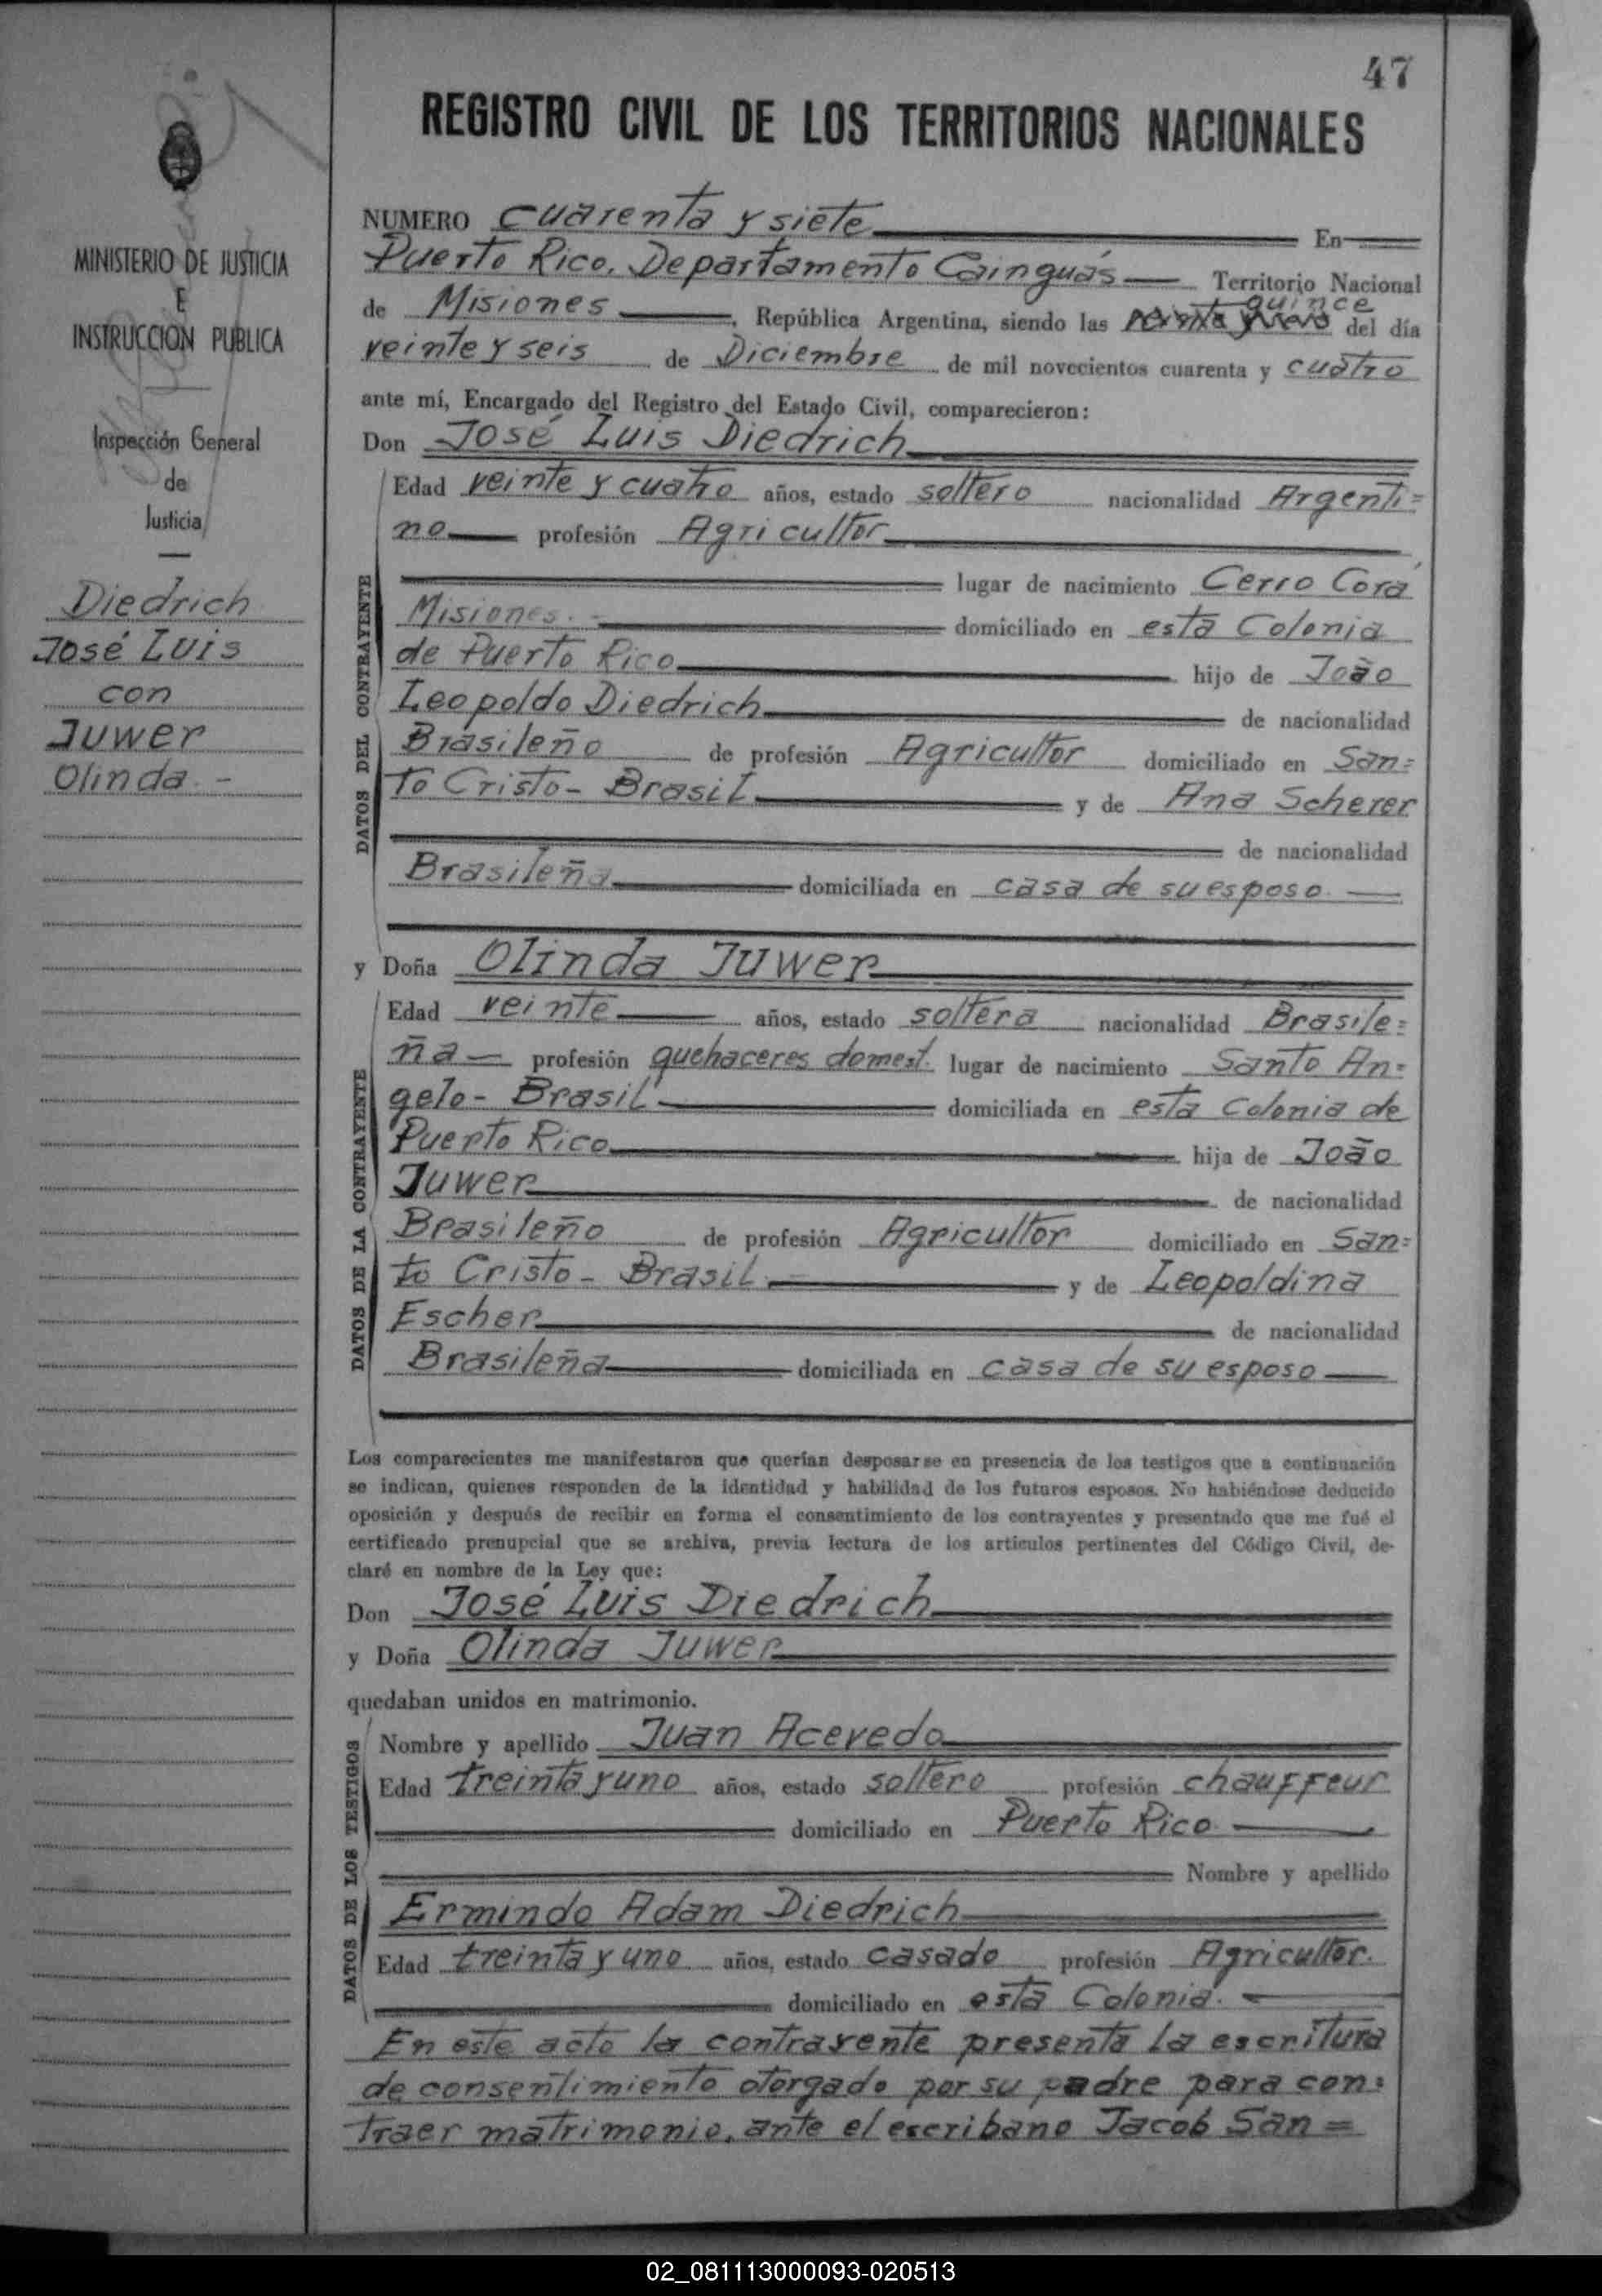 47
REGISTRO CIVIL DE LOS TERRITORIOS NACIONALES
MINISTERIO DE JUSTICIA
E
INSTRUCCIÓN PUBLICA
Inspección General
de
Justicia
Diedrich
José Luis
con
Juwer
Olinda. -
NUMERO cuarenta y siete En
Puerto Rico, Departamento Cainguás Territorio Nacional
de Misiones, República Argentina, siendo las quince del día
veinte y seis de Diciembre de mil novecientos cuarenta y cuatro
ante mí, Encargado del Registro del Estado Civil, comparecieron:
Don José Luis Diedrich
DATOS DEL CONTRAYENTE
Edad veinte y cuatro años, estado soltero nacionalidad Argenti=
no profesión Agricultor
lugar de nacimiento Cerro Corá
Misiones. - domiciliado en esta Colonia
de Puerto Rico hijo de João
Leopoldo Diedrich de nacionalidad
Brasileño de profesión Agricultor domiciliado en San=
to Cristo - Brasil y de Ana Scherer
de nacionalidad
Brasileña domiciliada en casa de su esposo
y Doña Olinda Juwer
DATOS DE LA CONTRAYENTE
Edad veinte años, estado soltera nacionalidad Brasile=
ña profesión quehaceres domest. lugar de nacimiento Santo An=
gelo - Brasil domiciliada en esta Colonia de
Puerto Rico hija de João
Juwer de nacionalidad
Brasileño de profesión Agricultor domiciliado en San=
to Cristo - Brasil y de Leopoldina
Escher de nacionalidad
Brasileña domiciliada en casa de su esposo
Los comparecientes me manifestaron que querían desposarse en presencia de los testigos que a continuación
se indican, quienes responden de la identidad y habilidad de los futuros esposos. No habiéndose deducido
oposición y después de recibir en forma el consentimiento de los contrayentes y presentado que me fué el
certificado prenupcial que se archiva, previa lectura de los artículos pertinentes del Código Civil, de-
claré en nombre de la Ley que:
Don José Luis Diedrich
y Doña Olinda Juwer
quedaban unidos en matrimonio.
DATOS DE LOS TESTIGOS
Nombre y apellido Juan Acevedo
Edad treinta y uno años, estado soltero profesión chauffeur
domiciliado en Puerto Rico
Nombre y apellido
Ermindo Adam Diedrich
Edad treinta y uno años, estado casado profesión Agricultor.
domiciliado en esta Colonia.
En este acto la contrayente presenta la escritura
de consentimiento otorgado por su padre para con=
traer matrimonio, ante el escribano Jacob San=
02_081113000093-020513